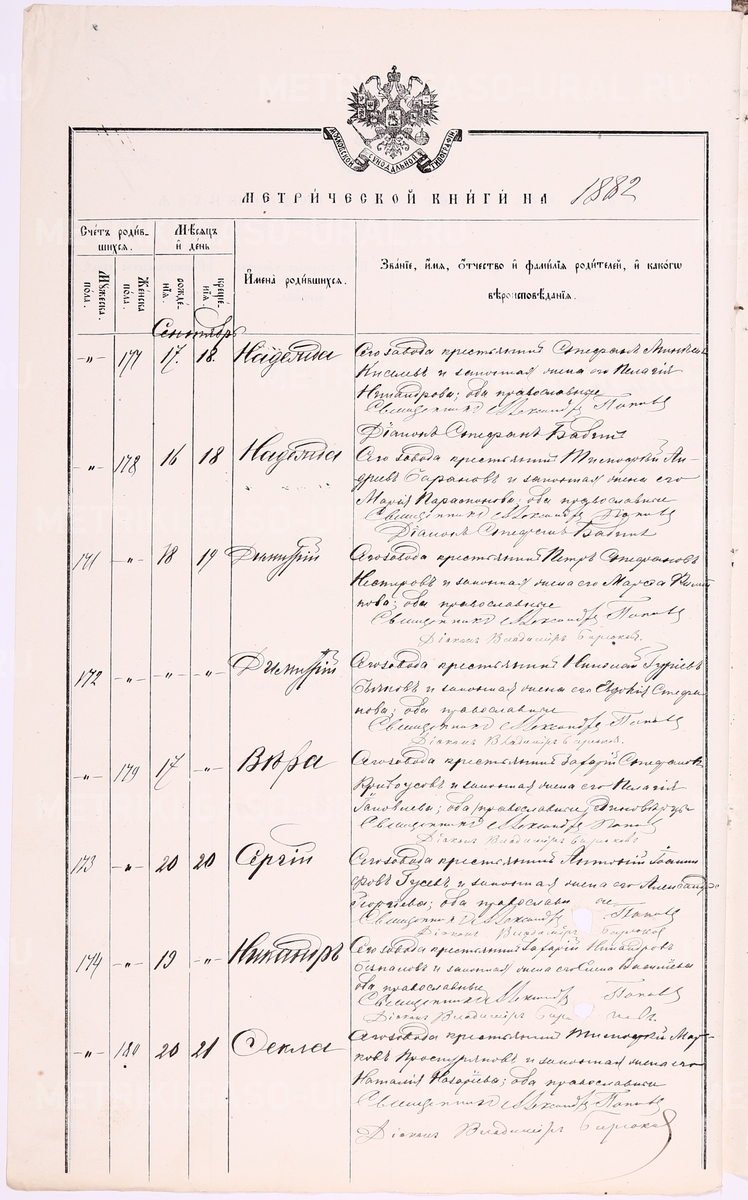 ДОКУМЕНТ СУНОДАЛЬНОЙ ТИПОГРАФІИ
МЕТРИ́ЧЕСКОЙ КНИ́ГИ НА 1882
Сче́тъ роди́в-
шихся.
М҃ѣсяцъ
и҆ де́нь
Мꙋ́жеска
по́ла.
Же́нска
по́ла.
рожде́-
нїѧ.
креще́-
нїѧ.
И҆мена̀ роди́вшихсѧ.
Зва́нїе, и҆́мѧ, ѻ҆́тчество и҆ фами́лїѧ роди́телей, и҆ како́гѡ
вѣроисповѣ́данїѧ.
Сентябрь
-„- 177 17. 18. Надежда
Сего завода крестьянинъ Стефанъ
Киселевъ и законная жена его Пелагія
Никандрова; оба православные
Священникъ Александръ Поповъ
Діаконъ Стефанъ Бабинъ
-„- 178 16 18 Надежда
Сего завода крестьянинъ Тимофей Ан-
дреевъ Барановъ и законная жена его
Марія Парамонова; оба православные
Священникъ Александръ Поповъ
Діаконъ Стефанъ Бабинъ
171 -„- 18 19 Димитрій
Сего завода крестьянинъ Петръ Стефановъ
Нестеровъ и законная жена его Марѳа
пова; оба православные
Священникъ Александръ Поповъ
Діаконъ Владиміръ Бирюковъ.
172 -„- -„- -„- Димитрій
Сего завода крестьянинъ Николай Гурьевъ
и законная жена его Евдокія Стефа-
нова; оба православные
Священникъ Александръ Поповъ
Діаконъ Владиміръ Бирюковъ.
-„- 179 17 -„- Вѣра
Сего завода крестьянинъ Захарій Стефановъ
Кривоусовъ и законная жена его Пелагія
Іаковлева; оба православные
Священникъ Александръ Поповъ
Діаконъ Владиміръ Бирюковъ
173 -„- 20 20 Сергій
Сего завода крестьянинъ Антоній
Гусевъ и законная жена его Александра
Георгіева; оба православные
Священникъ Александръ Поповъ
Діаконъ Владиміръ Бирюковъ
174 -„- 19 -„- Никандръ
Сего завода крестьянинъ Захарій Никандровъ
и законная жена его Елена
оба православные
Священникъ Александръ Поповъ
Діаконъ Владиміръ
-„- 180 20 21 Ѳекла
Сего завода крестьянинъ Тимофей Мар-
ковъ Проскуряковъ и законная жена его
Наталія Назарьева; оба православные
Священникъ Александръ Поповъ
Діаконъ Владиміръ Бирюковъ